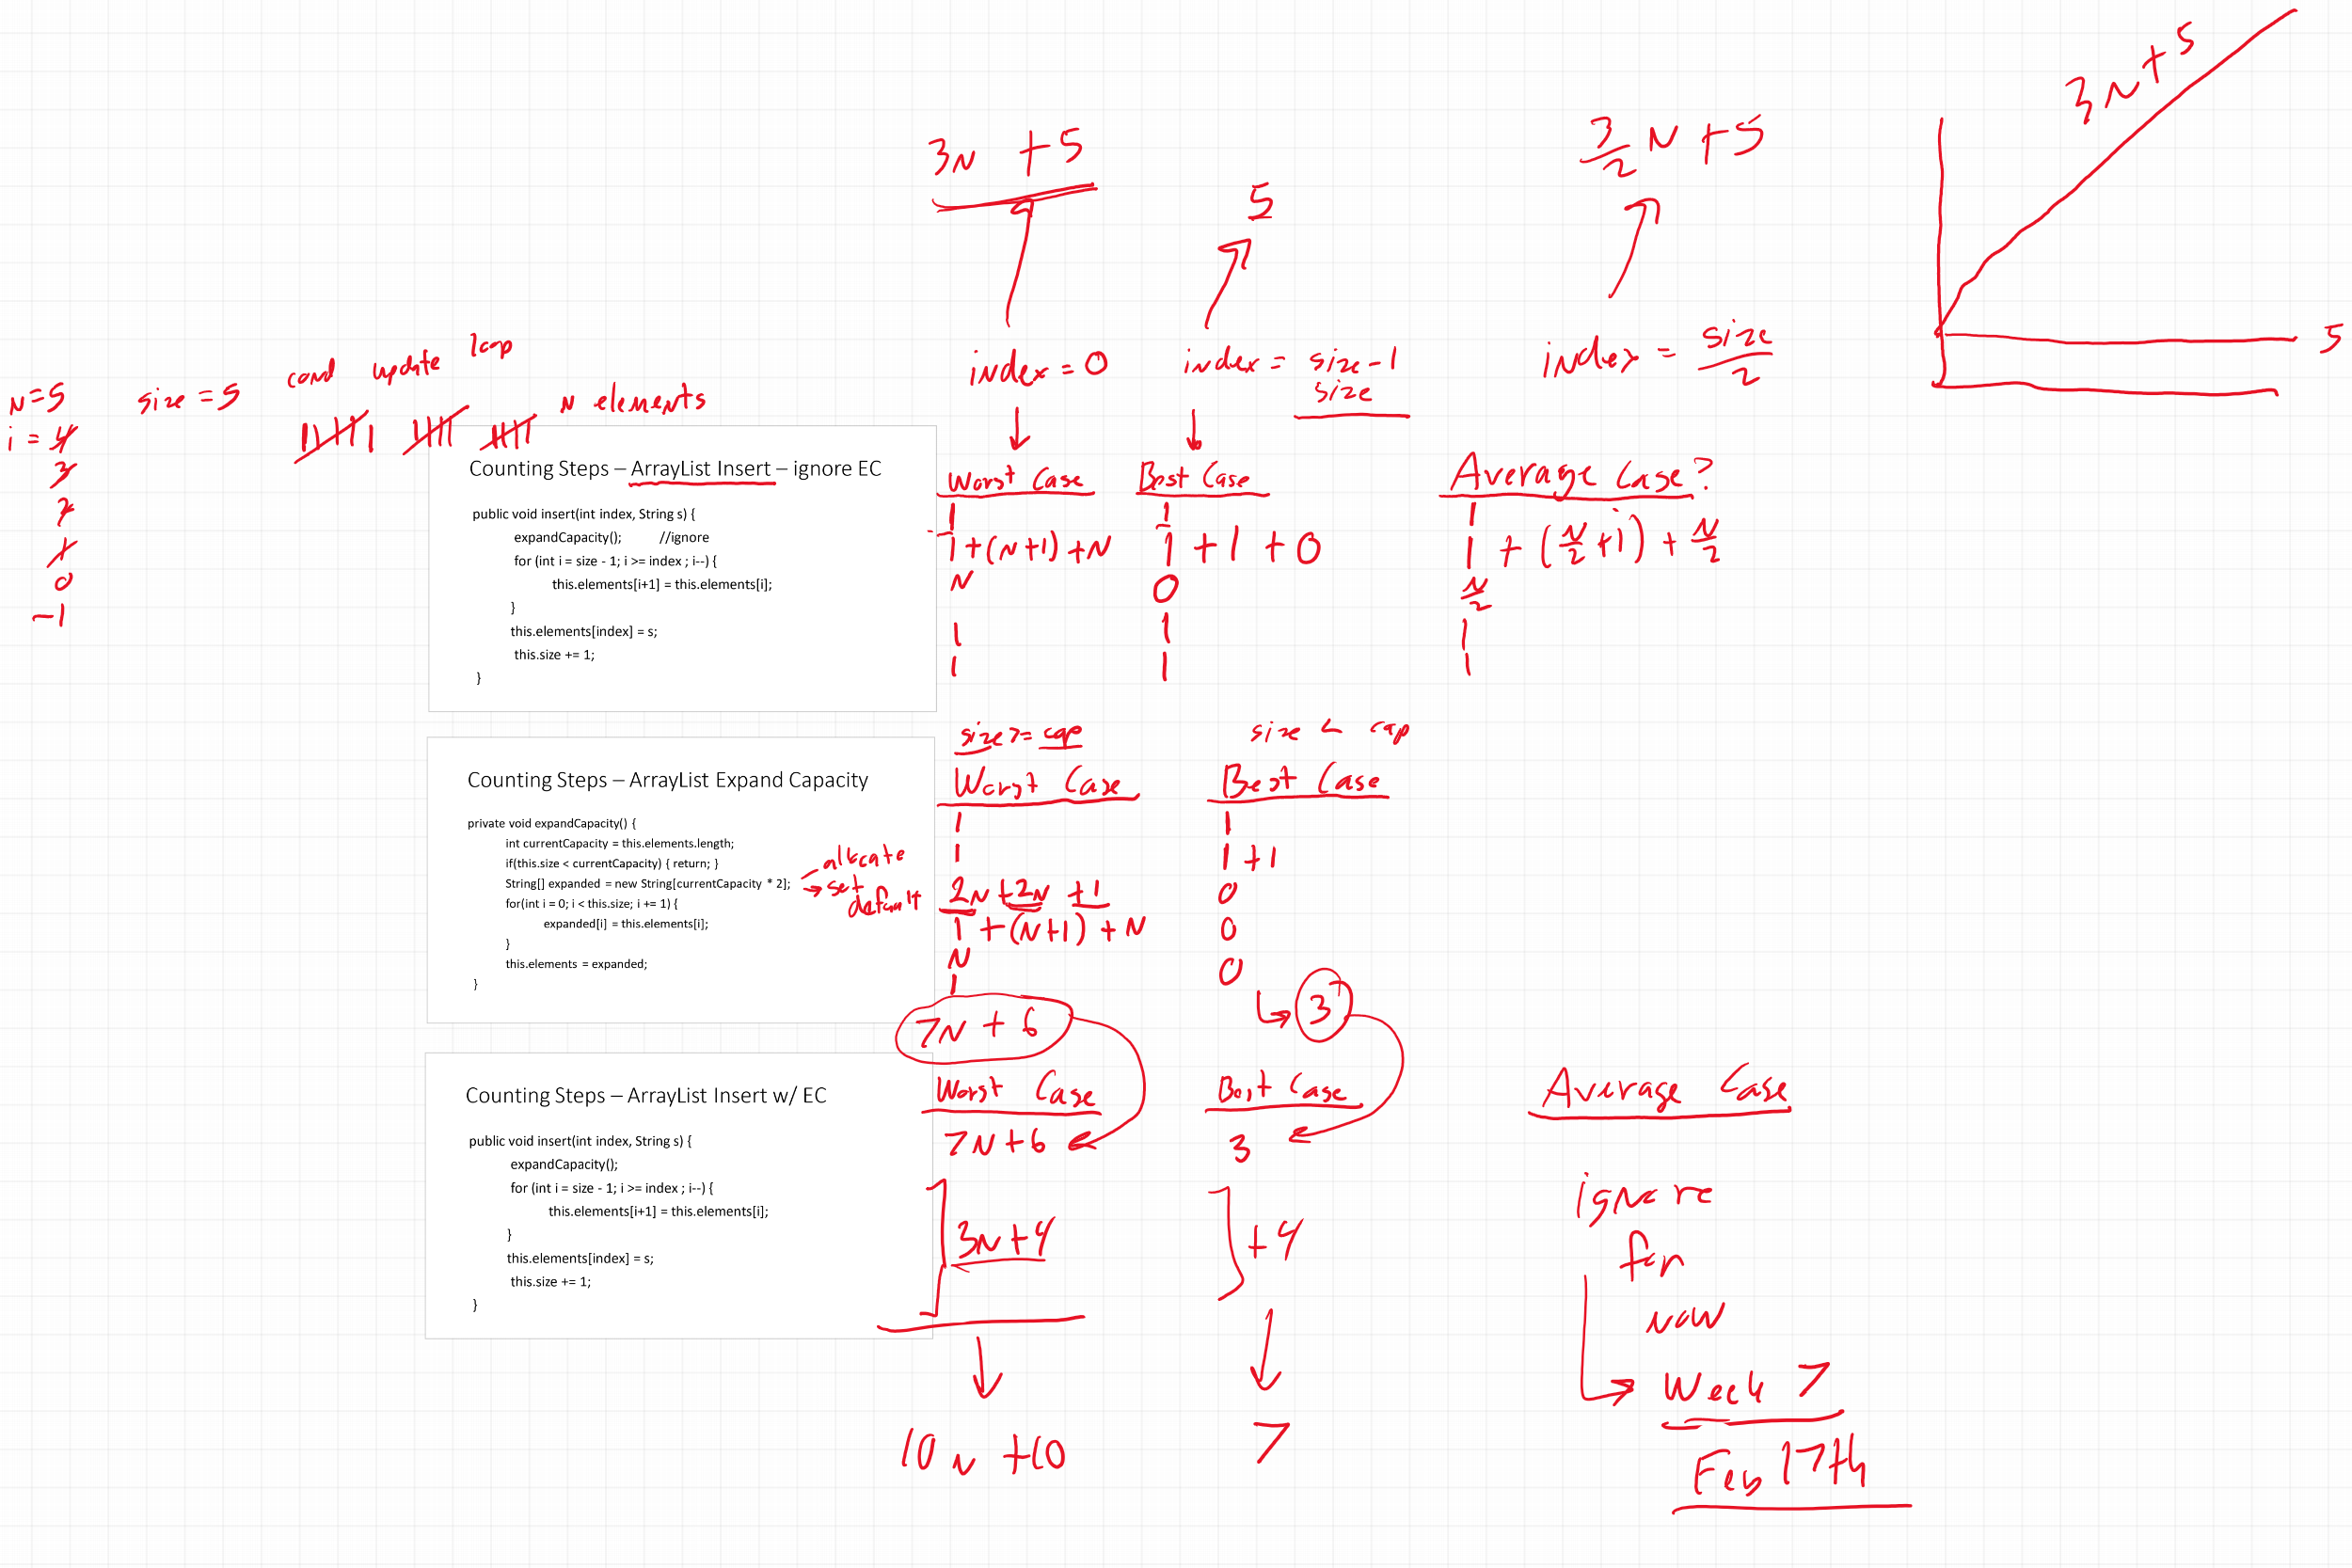 3N + 5
5
3/2 N + 5
3N + 5
5
index = 0
index = size - 1
size
index = size/2
N = 5
size = 5
cond update loop
N elements
i = 4
3
2
1
0
-1
Counting Steps – ArrayList Insert – ignore EC
public void insert(int index, String s) {
expandCapacity(); //ignore
for (int i = size - 1; i >= index ; i--) {
this.elements[i+1] = this.elements[i];
}
this.elements[index] = s;
this.size += 1;
}
Worst Case
1
1 + (N+1) + N
N
1
1
Best Case
1
1 + 1 + 0
0
1
1
Average Case?
1
1 + (N/2 + 1) + N/2
N/2
1
1
Counting Steps – ArrayList Expand Capacity
private void expandCapacity() {
int currentCapacity = this.elements.length;
if(this.size < currentCapacity) { return; }
String[] expanded = new String[currentCapacity * 2];
for(int i = 0; i < this.size; i += 1) {
expanded[i] = this.elements[i];
}
this.elements = expanded;
}
allocate
set
default
size >= cap
Worst Case
1
1
2N + 2N + 1
1 + (N+1) + N
N
1
7N + 6
size < cap
Best Case
1
1 + 1
0
0
0
3
Counting Steps – ArrayList Insert w/ EC
public void insert(int index, String s) {
expandCapacity();
for (int i = size - 1; i >= index ; i--) {
this.elements[i+1] = this.elements[i];
}
this.elements[index] = s;
this.size += 1;
}
Worst Case
7N + 6
3N + 4
10N + 10
Best Case
3
+ 4
7
Average Case
ignore
for
now
Week 7
Feb 17th